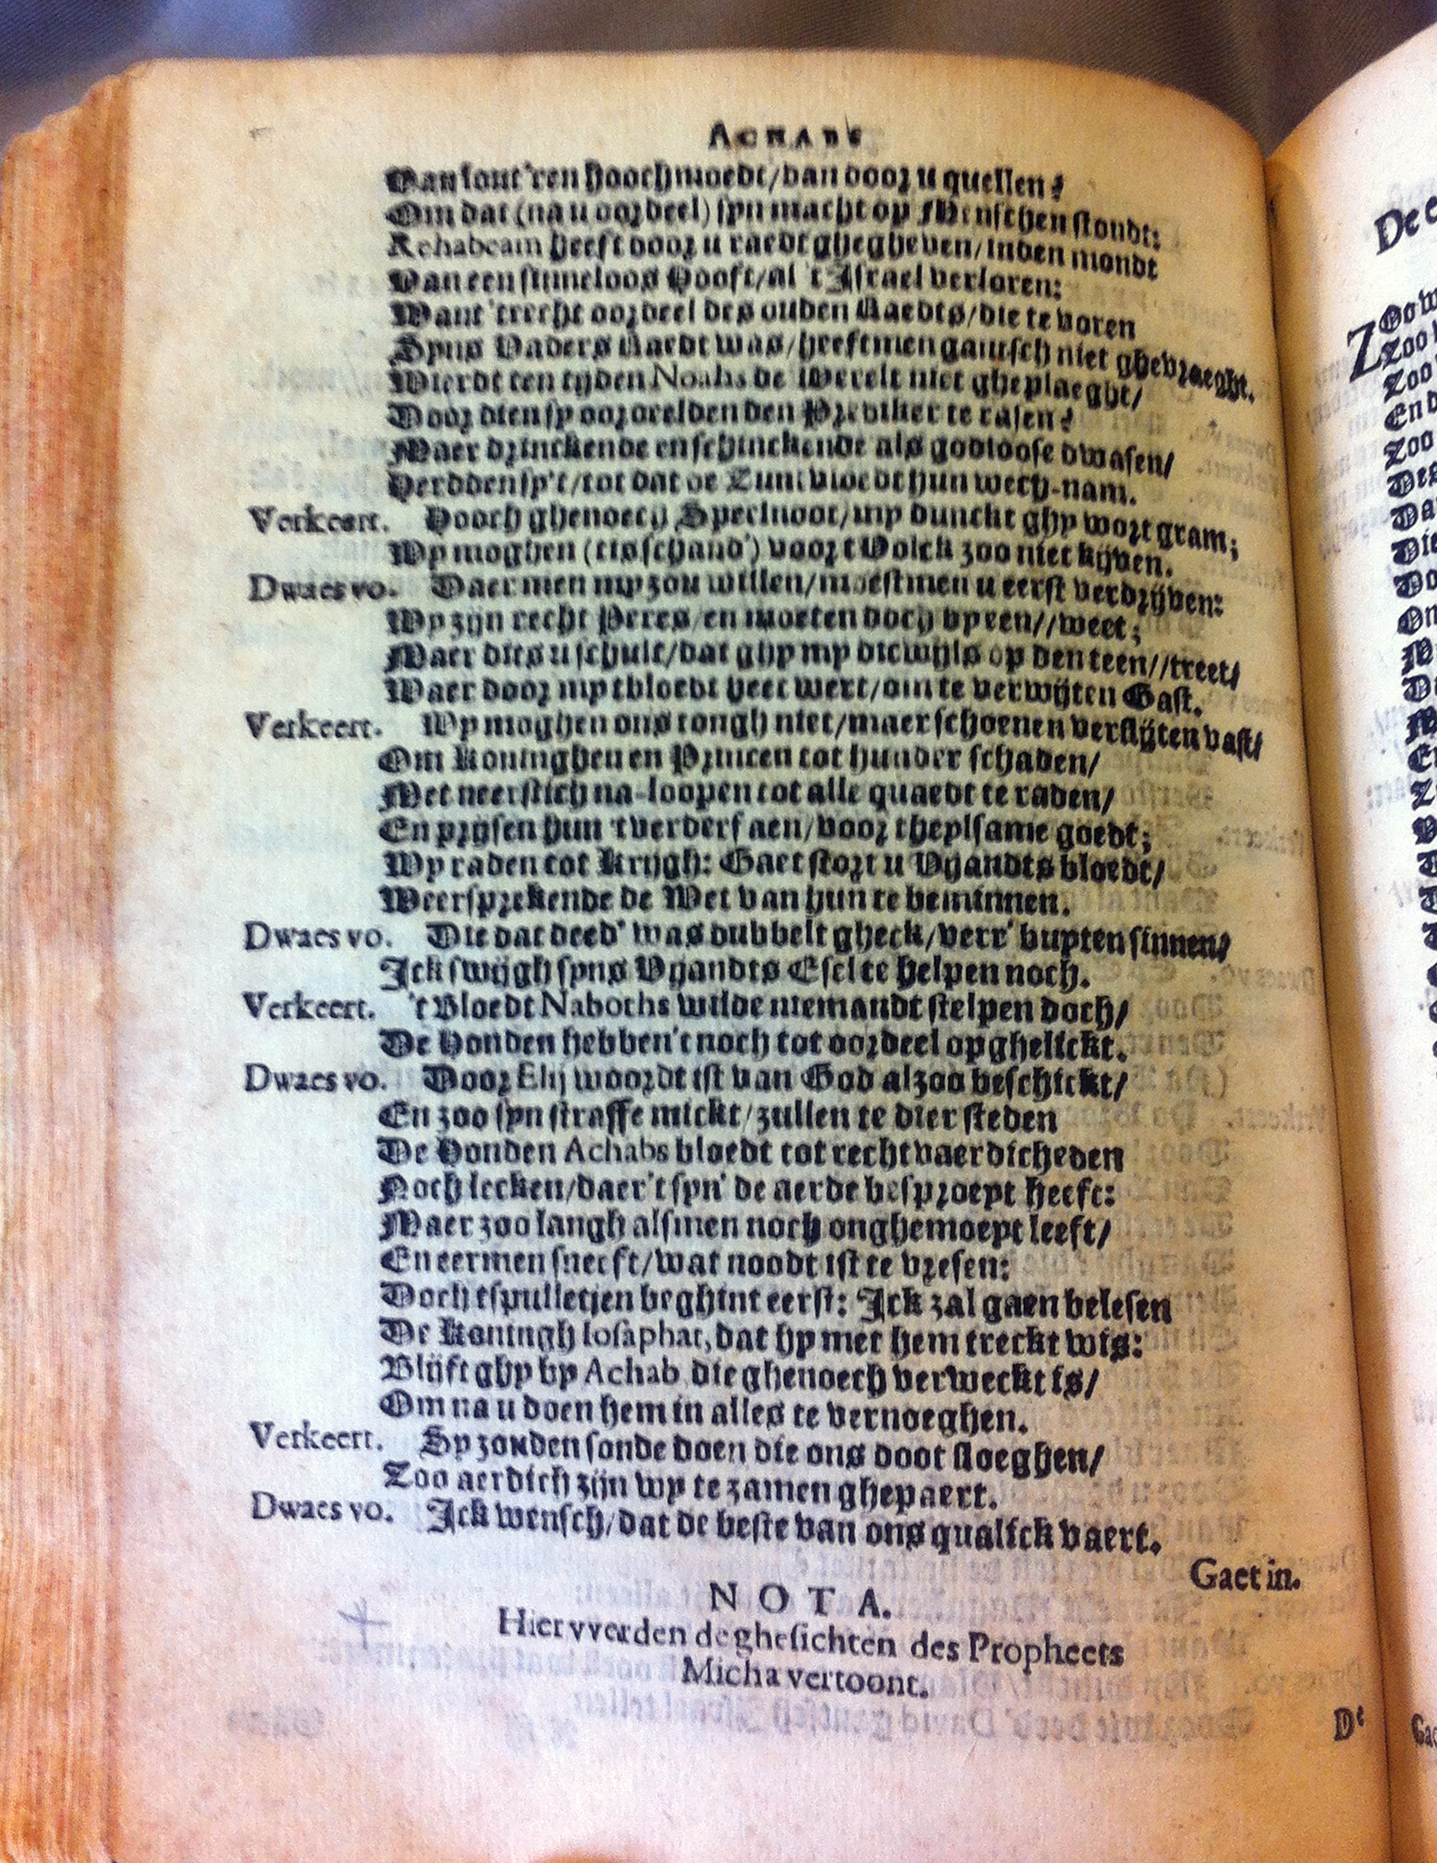 ACHABS
Van sout'ren hoochmoedt/dan door u quellen?
Om dat (na u oordeel) syn macht op Menschen stondt:
Rehabeam heeft door u raedt ghegheven/inden mondt
Van een sinneloos Hooft/al 't Israel verloren:
Want 'trecht oordeel des ouden Raedts/die te voren
Syns Vaders Raedt was/heeftmen gantsch niet ghevraeght.
Wierdt ten tyden Noahs de Werelt niet gheplaeght/
Door dien sy oordeelden den Prediker te rasen?
Maer drinckende en schinckende als godloose dwasen/
Herdden sy't/tot dat de Zuntvloedt hun wech-nam.
Verkeert. Hooch ghenoech Speelnoot/my dunckt ghy wort gram;
Wy moghen (tis schand') voor t Volck zoo niet kijven.
Dwaes vo. Daer men my zou willen/moestmen u eerst verdrijven:
Wy zijn recht Peres/en moeten doch by een//weet;
Maer dits u schult/dat ghy my dicwijls op den teen//treet/
Waer door my tbloedt heet wert/om te verwijten Gast.
Verkeert. Wy moghen ons tongh niet/maer schoenen verslijten vast/
Om Koninghen en Princen tot hunder schaden/
Met neerstich na-loopen tot alle quaedt te raden/
En prysen hun tverderf aen/voor theylsame goedt;
Wy raden tot Krijgh: Gaet stort u Vyandts bloedt/
Weersprekende de Wet van hun te beminnen.
Dwaes vo. Die dat deed' was dubbelt gheck/verr' buyten sinnen/
Ick swijgh syns Vyandts Esel te helpen noch.
Verkeert. 't Bloedt Naboths wilde niemandt stelpen doch/
De Honden hebben't noch tot oordeel opghelickt.
Dwaes vo. Door Elij woordt ist van God alzoo beschickt/
En zoo syn straffe mickt/zullen te dier steden
De Honden Achabs bloedt tot rechtvaerdicheden
Noch lecken/daer't syn' de aerde besproeyt heeft:
Maer zoo langh alsmen noch onghemoeyt leeft/
En eermen sneeft/wat noodt ist te vresen:
Doch tspulletjen beghint eerst: Ick zal gaen belesen
De Koningh Iosaphat, dat hy met hem treckt wis:
Blijft ghy by Achab die ghenoech verweckt is/
Om na u doen hem in alles te vernoeghen.
Verkeert. Sy zouden sonde doen die ons doot sloeghen/
Zoo aerdich zijn wy te zamen ghepaert.
Dwaes vo. Ick wensch/dat de beste van ons qualick vaert.
Gaet in.
NOTA.
Hier vverden de ghesichten des Propheets
Micha vertoont.
De